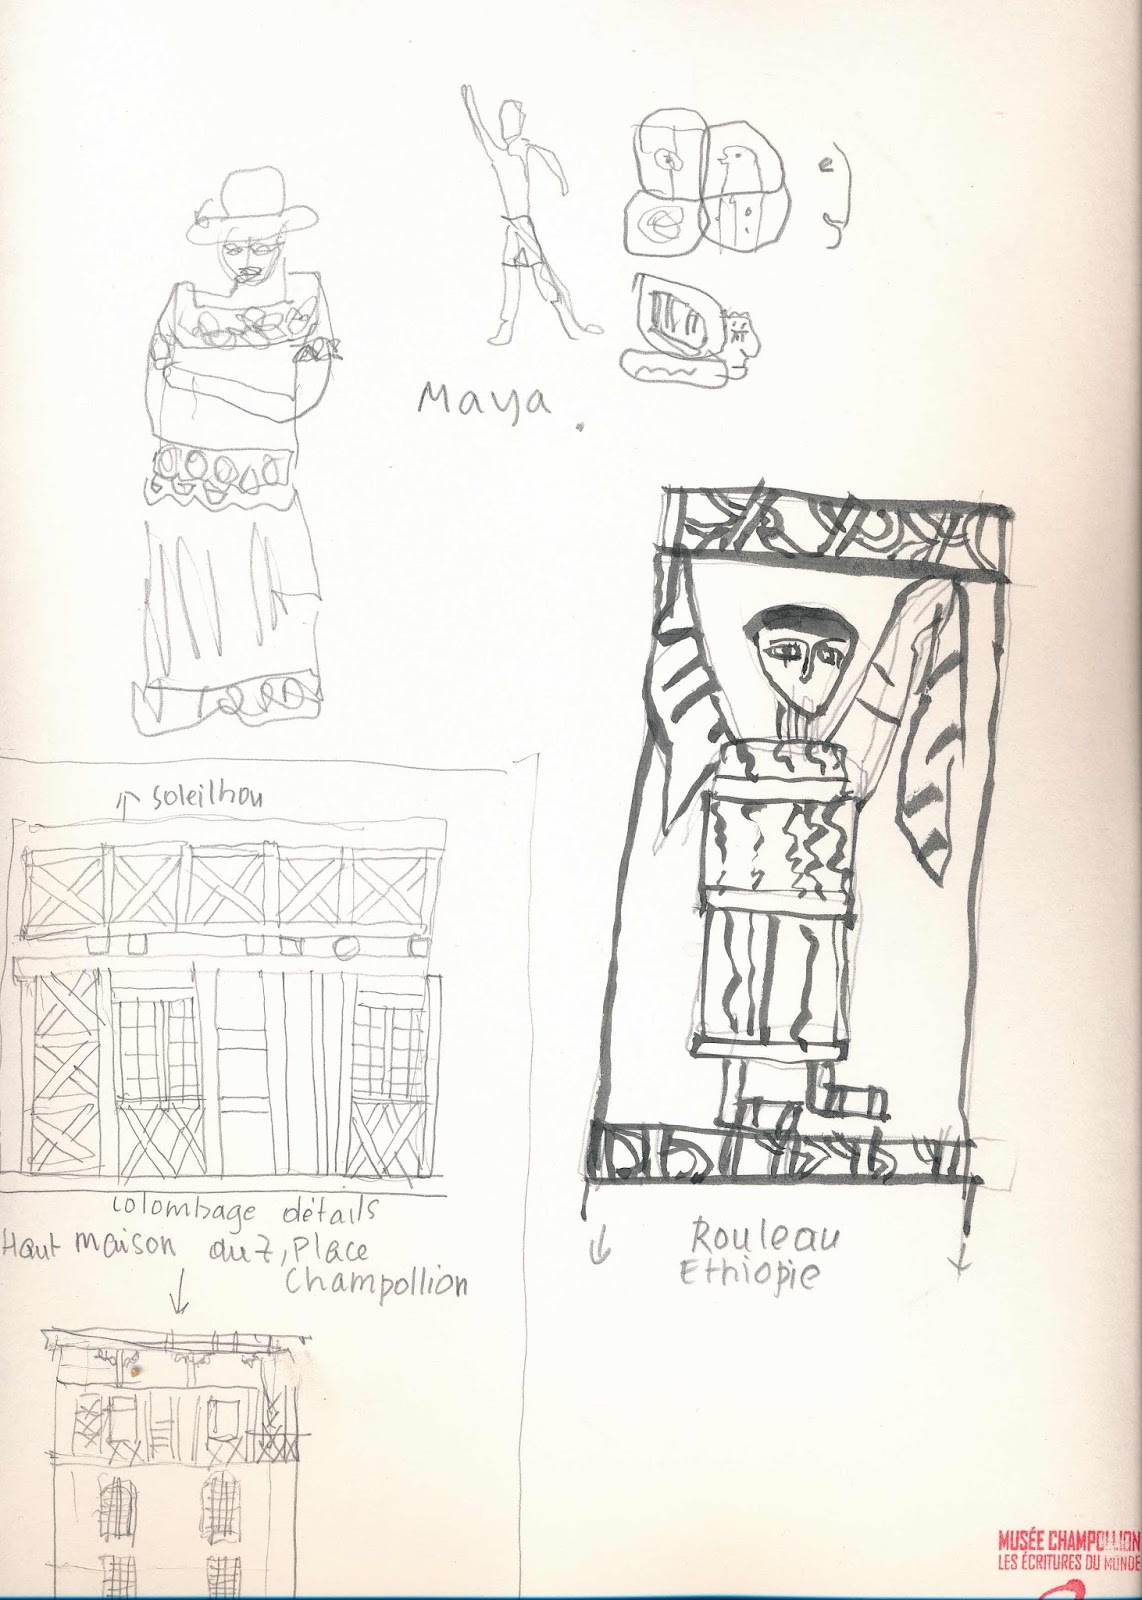 Maya
soleilhou
colombage détails
Haut maison du 7, Place
Champollion
Rouleau
Ethiopie
MUSÉE CHAMPOLLION
LES ÉCRITURES DU MONDE